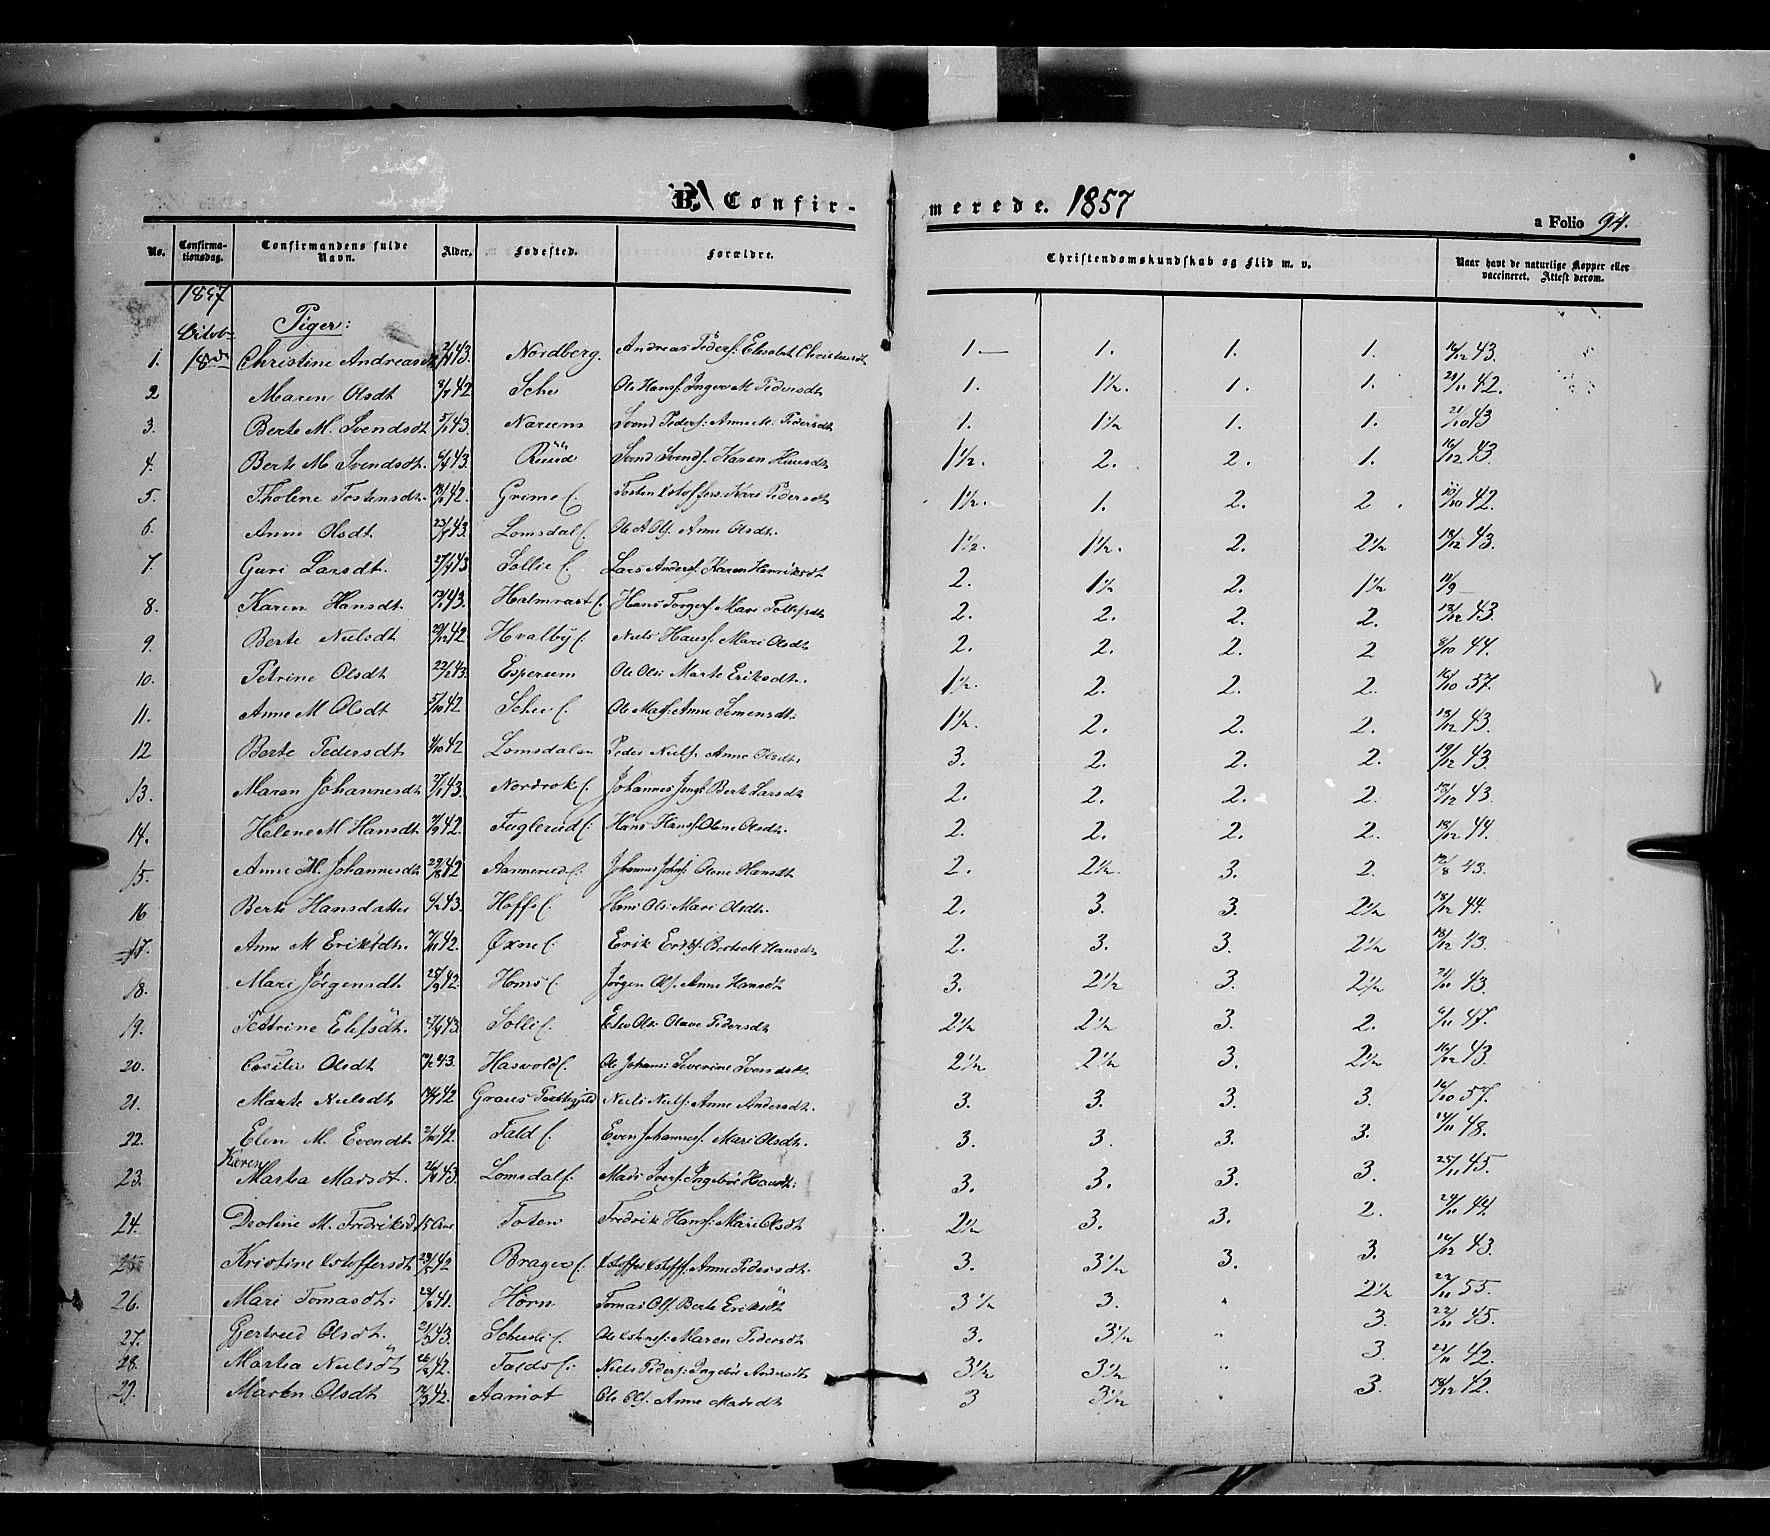 B. Confirmerede. 1857
a Folio 94.
No. Confirmationsdag. Confirmandens fulde Navn. Alder. Fødested. Forældre. Christendomskundskab og Flid m. v. Naar havt de naturlige Kopper eller vaccineret. Attest derom.
1857
Octob
Piger:
1. 18de Christine Andreasdt 43. Nordberg. Andreas Peders: Elisabet 1 1. 1. 1. 16/12 43.
2 Maren Olsdt 42 Sche Ole Hans: Inger M Pedersdt 1. 1½. 1. 1. 21/11 42.
3. Berte M. Svendsdt 5/1 43. Svend Peders: Anne M. Pedersdt 1. 1½ 1. 1. 21/10 43
4. Berte M Svendsdt. 43. Ruud Svend Svends: Karen Hansdt 1½. 2. 2. 1. 16/12 43.
5. Tholene Tostensdt. 42. Grime Tosten Kstoffers: Kari Pedersdt 1½. 1. 2. 2. 10/10 42.
6. Anne Olsdt. 43. Lomsdal Ole Ols: Anne Olsdt. 1½. 1½. 2. 2½ 18/12 43.
7. Guri Larsdt. 43 Sollie Lars Anders: Karen Henriksdt 2. 1½ 2. 1½
8. Karen Hansdt. 43. Halmrast Hans Torgers: Mari 2. 2. 2. 2. 18/12 43.
9. Berte Nielsdt 42. Hvalby Niels Hans: Mari Olsdt 2. 2. 2. 2 8/10 44.
10. Petrine Olsdt 43. Esperum Ole Ols: Marte Eriksdt. 1½. 2. 2. 2. 16/10 57.
11. Anne M Olsdt 5/10 42 Sche Ole Mats: Anne Simensdt. 1½. 2. 2. 2. 18/12 43.
12 Berte Pedersdt 42 Lomsdalen Peder Niels: Anne Olsdt. 3. 2. 2. 2. 19/12 43
13. Maren Johannesdt 27/1 43. Johannes Berte Larsdt 2. 2. 2. 2. 18/12 43.
14. Helene M Hansdt 42. Fuglerud Hans Hans: Olene Olsdt. 2. 2. 2. 2. 18/12 44.
15. Anne M. Johannesdt 29/8 42 Johannes Johs: Olene Hansdt 2. 2½. 3. 2. 43.
16 Berte Hansdatter 43. Hoff Hans Ols: Mari Olsdt. 2. 3. 3. 2½ 18/12 44.
17. Anne M Eriksdt. 42. Øxne Erik Eriks: Berte M Hansdt 2. 3. 3. 2½ 18/12 43.
18. Mari Jörgensdt 25/9 42. Jörgen Ols: Anne Hansdt 3. 2½ 3. 2½ 21/11 43.
19. Pettrine Elefsdt. 43. Solli Elev Ols: Olene Pedersdt 2½ 2½ 3. 2. 47.
20. Cesilie Olsdt 43. Hasvold Ole Johans: Severine Svendsdt 2½ 2½ 3. 2½ 16/12 43.
21. Marte Nielsdt 42 Niels Niels: Anne Andersdt. 3. 3. 3. 3. 16/10 57.
22. Elen M. Evendt 42. Fald Even Johannes: Mari Olsdt. 3. 3. 3. 3. 14/11 48.
23. Karen Martea Madsdt. 43. Lomsdal Mads Ingebor 3. 3. 3. 3. 25/11 45.
24. Deoline M. Fredriksd 15 Toten Fredrik Hans: Mari Olsdt 2½ 3. 3. 2. 44.
25 Kristine Kstoffersdt 42 Brager Kstoffer Kstoff: Anne Pedersdt. 3. 3½ 3. 3. 16/12 43.
26. Mari Tomasdt: 41. Horn Tomas Ols: Berte Eriksdt 3½ 3. " 2½ 22/11 55.
27. Gjertrud Olsdt. 43. Maren Pedersdt 3. 3½ " 3. 22/11 45.
28. Martea Nielsdt 42. Falds Niels Peders: Ingebor Andersdt 3½ 3½ " 3. 42.
29. Maren Olsdt 42. Aamot Ole Ols: Anne Madsdt 3 3½ " 3. 18/12 42.